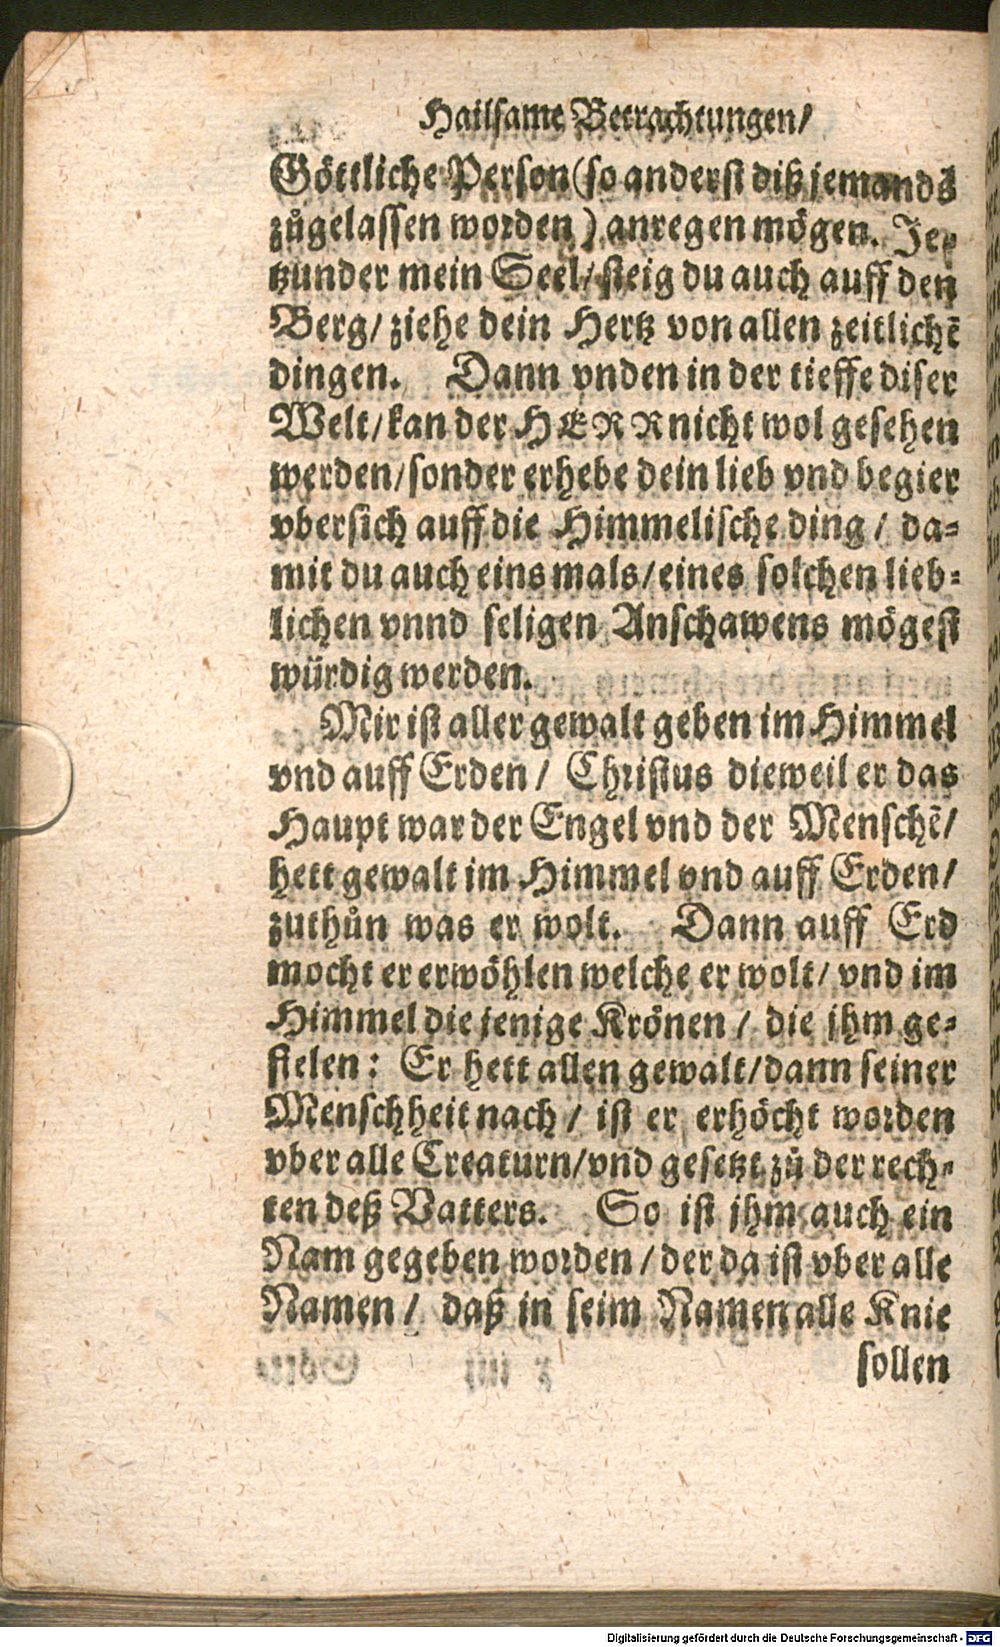 Hailsame Betrachtungen/
Göttliche Person (so anderst diß jemands
zůgelassen worden) anregen mögen. Je-
tzunder mein Seel/ steig du auch auff den
Berg/ ziehe dein Hertz von allen zeitlichē
dingen. Dann vnden in der tieffe diser
Welt/ kan der HERR nicht wol gesehen
werden/ sonder erhebe dein lieb vnd begier
vbersich auff die Himmelische ding/ da-
mit du auch eins mals/ eines solchen lieb-
lichen vnnd seligen Anschawens mögest
würdig werden.
Mir ist aller gewalt geben im Himmel
vnd auff Erden/ Christus dieweil er das
Haupt war der Engel vnd der Menschē/
hett gewalt im Himmel vnd auff Erden/
zuthůn was er wolt. Dann auff Erd
mocht er erwöhlen welche er wolt/ vnd im
Himmel die jenige Krönen/ die jhm ge-
fielen: Er hett allen gewalt/ dann seiner
Menschheit nach/ ist er erhöcht worden
vber alle Creaturn/ vnd gesetzt zů der rech-
ten deß Vatters. So ist jhm auch ein
Nam gegeben worden/ der da ist vber alle
Namen/ daß in seim Namen alle Knie
sollen
Digitalisierung gefördert durch die Deutsche Forschungsgemeinschaft - DFG